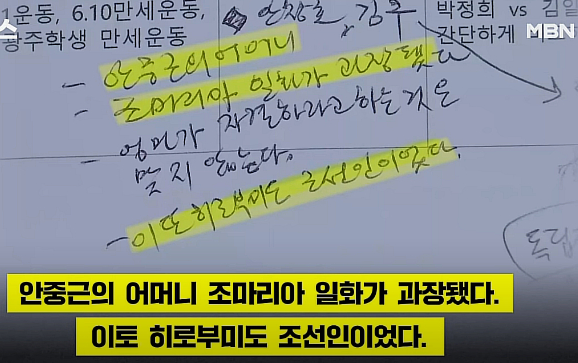 1운동, 6.10만세운동,
광주학생 만세운동
안창호, 김구
박정희 vs 김일
간단하게
MBN
스
- 안중근의 어머니
- 조마리아 일화가 과장됐다
- 엄마가 자결하라고하는것은
맞지 않는다.
- 이또히로부미도 조선인이었다.
독립
안중근의 어머니 조마리아 일화가 과장됐다.
이토 히로부미도 조선인이었다.